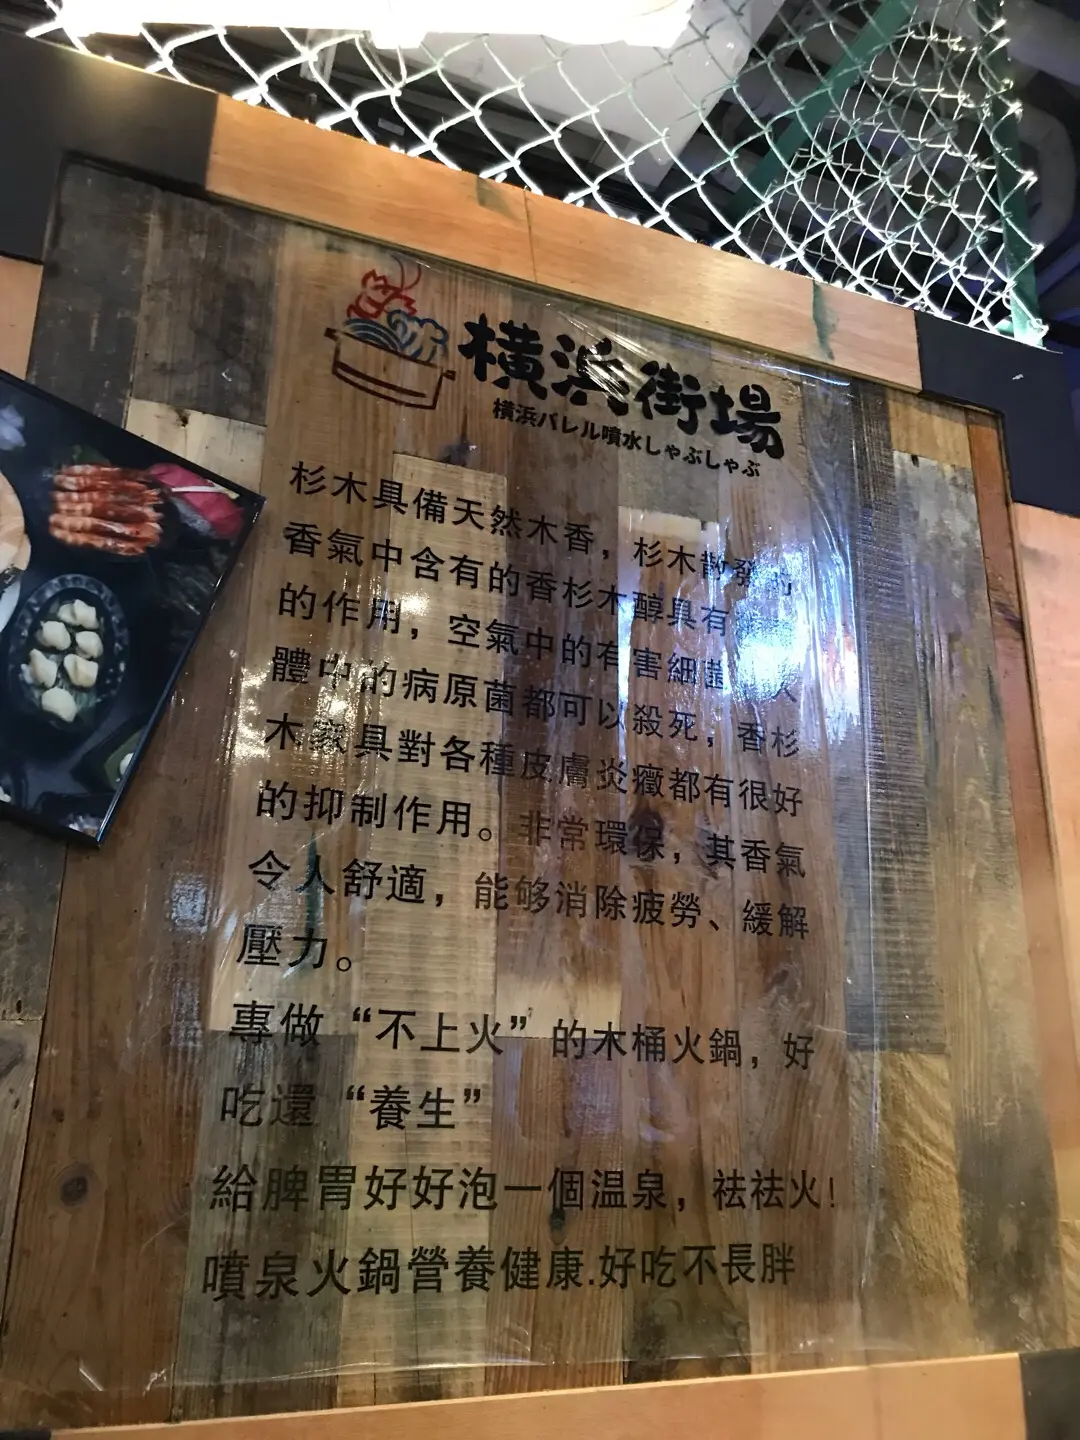 橫浜街場
横浜バレル噴水しゃぶしゃぶ
杉木具備天然木香，杉木散發的
香氣中含有的香杉木醇具有
的作用，空氣中的有害細菌
體中的病原菌都可以殺死，香杉
木家具對各種皮膚炎癥都有很好
的抑制作用。非常環保，其香氣
令人舒適，能够消除疲勞、緩解
壓力。
專做“不上火”的木桶火鍋，好
吃還“養生”
給脾胃好好泡一個温泉，祛祛火！
噴泉火鍋營養健康.好吃不長胖